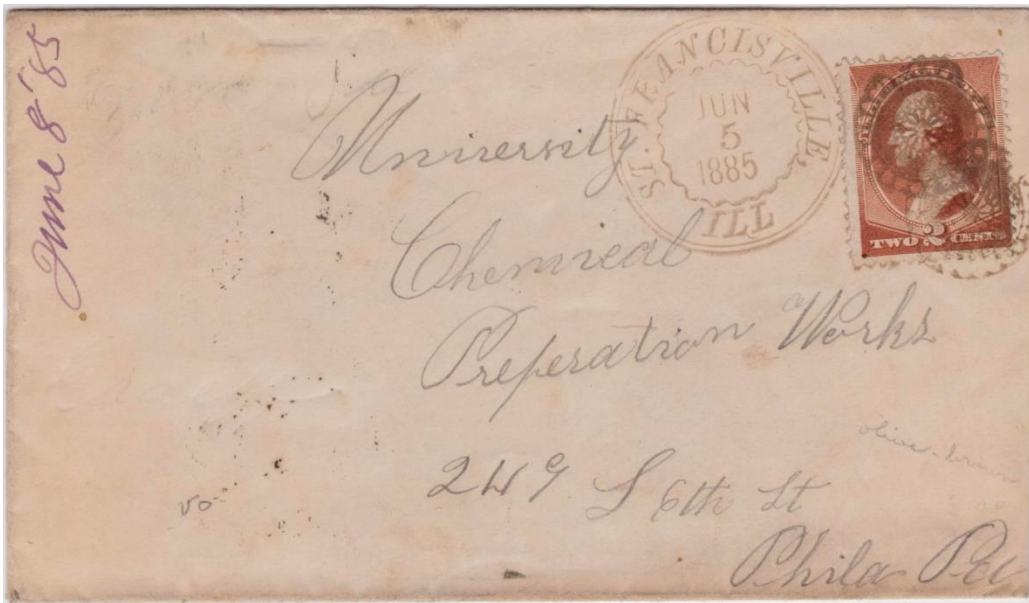 June 8 '85
ST. FRANCISVILLE,
JUN
5
1885
ILL
TWO 2 CENTS
University
Chemical
Preperation Works
249 S 6th St
Phila Pa
olive-brown